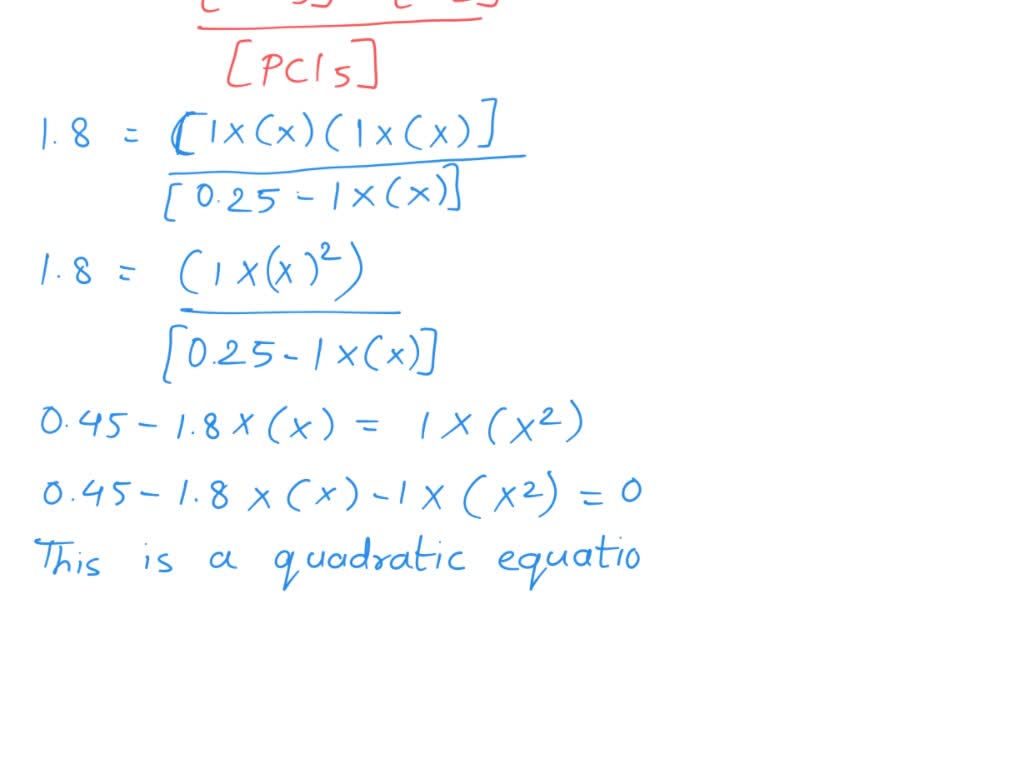 [PCl5]
1.8 = [1×(x)(1×(x)]
[0.25-1×(x)]
1.8 = (1×(x)²)
[0.25-1×(x)]
0.45-1.8×(x) = 1×(x²)
0.45-1.8×(x)-1×(x²)=0
This is a quadratic equatio